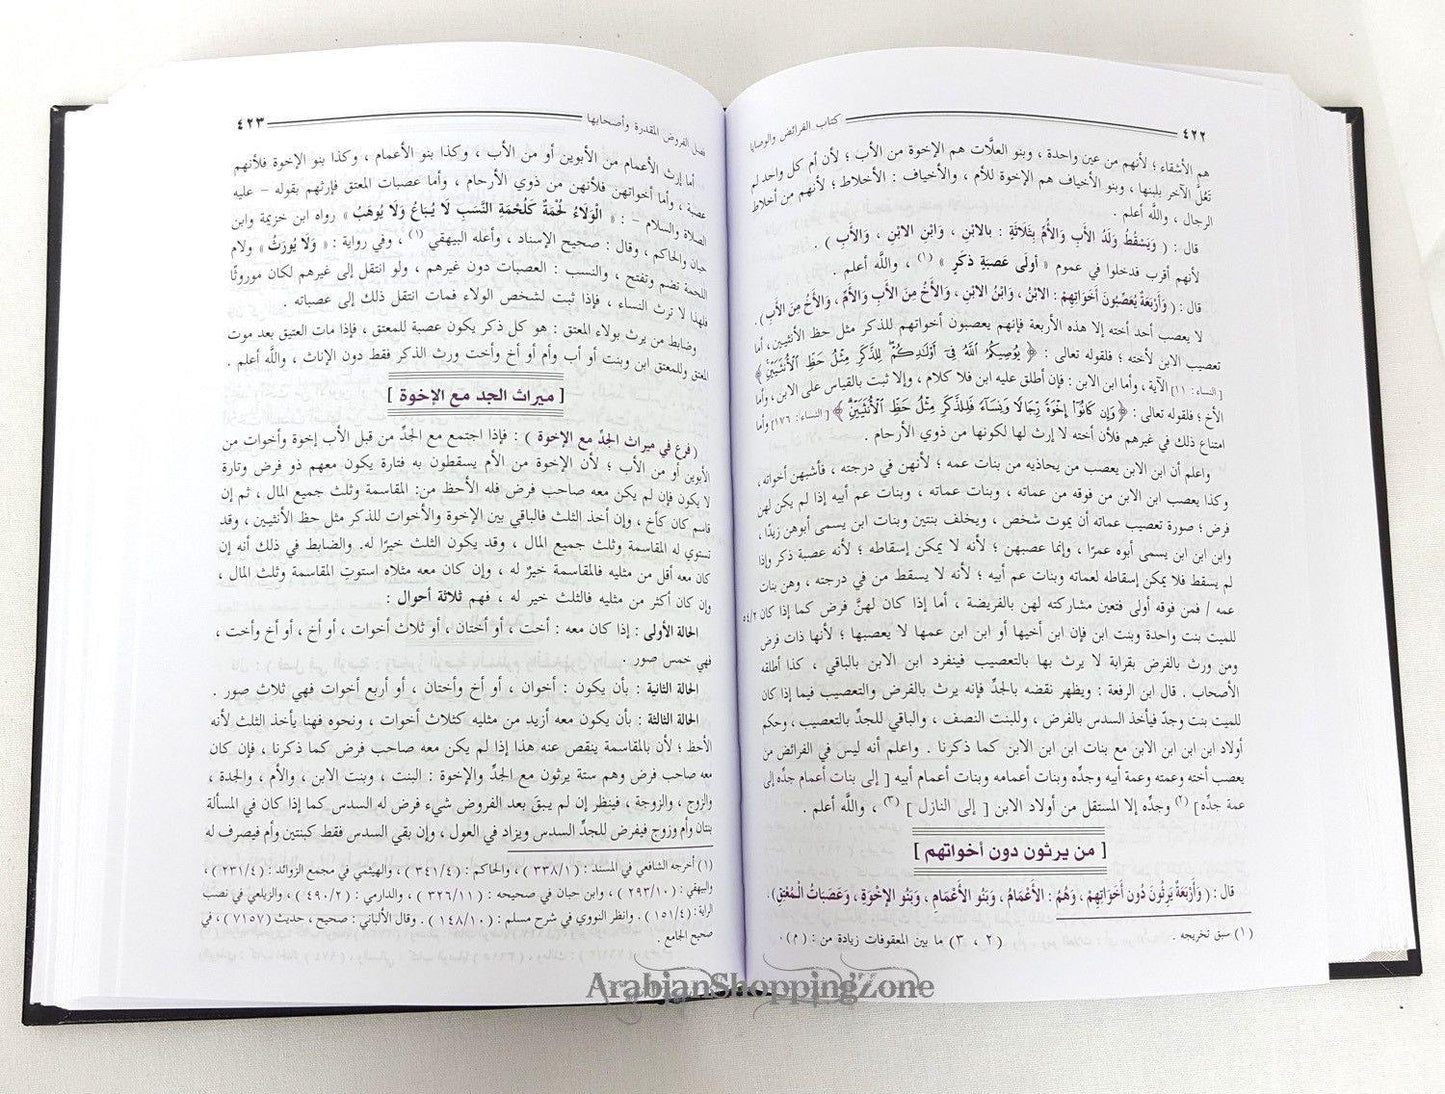 ٤٢٢ كتاب الفرائض والوصايا
هم الأشقاء ؛ لأنهم من عين واحدة ، وبنو العلَّات هم الإخوة من الأب ؛ لأن أم كل واحد لم
تَعُلَّ الآخر بلبنها ، وبنو الأخياف هم الإخوة للأم ، والأخياف : الأخلاط ؛ لأنهم من أخلاط
الرجال ، واللَّه أعلم .
قال : ( وَيَسْقُطُ وَلَدُ الأَبِ وَالأُمِّ بِثَلَاثَةٍ : بالابْنِ ، وَابْنِ الابْنِ ، وَالأَبِ ) .
لأنهم أقرب فدخلوا في عموم « أَولَى عَصَبَةٍ ذَكَرٍ » (١) ، واللَّه أعلم .
قال : ( وَأَرْبَعَةٌ يُعَصِّبُونَ أَخَوَاتِهِمْ : الابْنُ ، وَابْنُ الابْنِ ، وَالأَخُ مِنَ الأَبِ وَالأُمِّ ، وَالأَخُ مِنَ الأَبِ ) .
لا يعصب أحد أخته إلا هذه الأربعة فإنهم يعصبون أخواتهم للذكر مثل حظ الأنثيين ، أما
تعصيب الابن لأخته ؛ فلقوله تعالى : ﴿ يُوصِيكُمُ ٱللَّهُ فِىٓ أَوْلَـٰدِكُمْ ۖ لِلذَّكَرِ مِثْلُ حَظِّ ٱلْأُنثَيَيْنِ ﴾
[ النساء : ١١ ] الآية ، وأما ابن الابن : فإن أطلق عليه ابن فلا كلام ، وإلا ثبت بالقياس على الابن ، وأما
الأخ ؛ فلقوله تعالى : ﴿ وَإِن كَانُوٓا۟ إِخْوَةً رِّجَالًا وَنِسَآءً فَلِلذَّكَرِ مِثْلُ حَظِّ ٱلْأُنثَيَيْنِ ﴾ [ النساء : ١٧٦ ] وأما
امتناع ذلك في غيرهم فلأن أخته لا إرث لها لكونها من ذوي الأرحام .
واعلم أن ابن الابن يعصب من يحاذيه من بنات عمه ؛ لأنهن في درجته ، فأشبهن أخواته ،
وكذا يعصب ابن الابن من فوقه من عماته ، وبنات عماته ، وبنات عم أبيه إذا لم يكن لهن
فرض ؛ صورة تعصيب عماته أن يموت شخص ، ويخلف بنتين وبنات ابن يسمى أبوهن زيدًا ،
وابن ابن ابن يسمى أبوه عمرًا ، وإنما عصبهن ؛ لأنه لا يمكن إسقاطه ؛ لأنه عصبة ذكر وإذا
لم يسقط فلا يمكن إسقاطه لعماته وبنات عم أبيه ؛ لأنه لا يسقط من في درجته ، وهن بنات
عمه / فمن فوقه أولى فتعين مشاركته لهن بالفريضة ، أما إذا كان لهنَّ فرض كما إذا كان ٥٤/٢
للميت بنت واحدة وبنت ابن فإن ابن أخيها أو ابن ابن عمها لا يعصبها ؛ لأنها ذات فرض
ومن ورث بالفرض بقرابة لا يرث بها بالتعصيب فينفرد ابن الابن بالباقي ، كذا أطلقه
الأصحاب . قال ابن الرفعة : ويظهر نقضه بالجدِّ فإنه يرث بالفرض والتعصيب فيما إذا كان
للميت بنت وجدّ فيأخذ السدس بالفرض ، وللبنت النصف ، والباقي للجدِّ بالتعصيب ، وحكم
أولاد ابن ابن الابن مع بنات ابن ابن الابن كما ذكرنا . واعلم أنه ليس في الفرائض من
يعصب أخته وعمته وعمة أبيه وجدِّه وبنات أعمامه وبنات أعمام أبيه [ إلى بنات أعمام جدِّه إلى
عمة جدِّه ] (٢) وجدِّه إلا المستقل من أولاد الابن [ إلى النازل ] (٣) ، واللَّه أعلم .
[ من يرثون دون أخواتهم ]
قال : ( وَأَرْبَعَةٌ يَرِثُونَ دُونَ أَخَوَاتِهِمْ ، وَهُمُ : الأَعْمَامُ ، وَبَنُو الأَعْمَامِ ، وَبَنُو الإخْوَةِ ، وَعَصَبَاتُ الْمُعْتِقِ ) .
(١) سبق تخريجه . (٢ ، ٣) ما بين المعقوفات زيادة من : ( م ) .
فصل الفروض المقدرة وأصحابها ٤٢٣
أما إرث الأعمام من الأبوين أو من الأب ، وكذا بنو الأعمام ، وكذا بنو الإخوة فلأنهم
عصبة ، وأما أخواتهن فلأنهن من ذوي الأرحام ، وأما عصبات المعتق فإرثهم بقوله – عليه
الصلاة والسلام – : « الْوَلَاءُ لُحْمَةٌ كَلُحْمَةِ النَّسَبِ لَا يُبَاعُ وَلَا يُوهَبُ » رواه ابن خزيمة وابن
حبان والحاكم ، وقال : صحيح الإسناد ، وأعله البيهقي (١) ، وفي رواية : « وَلَا يُورَثُ » ولام
اللحمة تضم وتفتح ، والنسب : العصبات دون غيرهم ، ولو انتقل إلى غيرهم لكان موروثًا
فلهذا لا ترث النساء ، فإذا ثبت لشخص الولاء فمات انتقل ذلك إلى عصباته .
وضابط من يرث بولاء المعتق : هو كل ذكر يكون عصبة للمعتق ، فإذا مات العتيق بعد موت
المعتق وللمعتق ابن وبنت أو أب وأم أو أخ وأخت ورث الذكر فقط دون الإناث ، واللَّه أعلم .
[ ميراث الجد مع الإخوة ]
( فرع في ميراث الجدِّ مع الإخوة ) : فإذا اجتمع مع الجدِّ من قبل الأب إخوة وأخوات من
الأبوين أو من الأب ؛ لأن الإخوة من الأم يسقطون به فتارة يكون معهم ذو فرض وتارة
لا يكون فإن لم يكن معه صاحب فرض فله الأحظ من: المقاسمة وثلث جميع المال ، ثم إن
قاسم كان كأخ ، وإن أخذ الثلث فالباقي بين الإخوة والأخوات للذكر مثل حظ الأنثيين ، وقد
تستوي له المقاسمة وثلث جميع المال ، وقد يكون الثلث خيرًا له. والضابط في ذلك أنه إن
كان معه أقل من مثليه فالمقاسمة خيرٌ له ، وإن كان معه مثلاه استوت المقاسمة وثلث المال ،
وإن كان أكثر من مثليه فالثلث خير له ، فهم ثلاثة أحوال :
الحالة الأولى : إذا كان معه : أخت ، أو أختان ، أو ثلاث أخوات ، أو أخ ، أو أخ وأخت ،
فهي خمس صور .
الحالة الثانية : بأن يكون : أخوان ، أو أخ وأختان ، أو أربع أخوات فهي ثلاث صور .
الحالة الثالثة : بأن يكون معه أزيد من مثليه كثلاث أخوات ، ونحوه فهنا يأخذ الثلث لأنه
الأحظ ؛ لأن بالمقاسمة ينقص عنه هذا إذا لم يكن معه صاحب فرض كما ذكرنا ، فإن كان
معه صاحب فرض وهم ستة يرثون مع الجدِّ والإخوة : البنت ، وبنت الابن ، والأم ، والجدة ،
والزوج ، والزوجة ، فينظر إن لم يبقَ بعد الفروض شيء فرض له السدس كما إذا كان في المسألة
بنتان وأم وزوج فيفرض للجدِّ السدس ويزاد في العول ، وإن بقي السدس فقط كبنتين وأم فيصرف له
(١) أخرجه الشافعي في المسند : ( ٣٣٨/١ ) ، والحاكم : ( ٣٤١/٤ ) ، والهيثمي في مجمع الزوائد : ( ٢٣١/٤ )
والبيهقي : ( ٢٩٣/١٠ ) ، وابن حبان في صحيحه : ( ٣٢٦/١١ ) ، والدارمي : ( ٤٩٠/٢ ) ، والزيلعي في نصب
الراية : ( ١٥١/٤ ) . وانظر النووي في شرح مسلم : ( ١٤٨/١٠ ) . وقال الألباني : صحيح ، حديث ( ٧١٥٧ ) ، في
صحيح الجامع .
ArabianShoppingZone